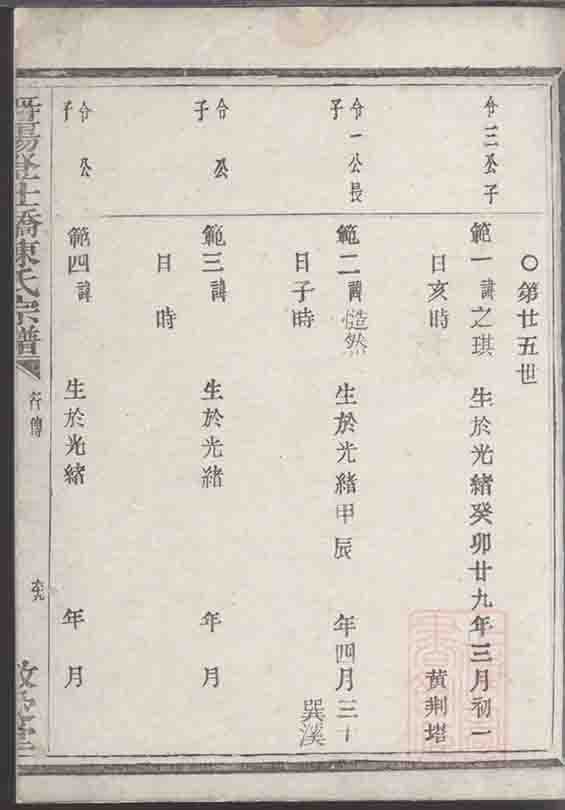 ○第廿五世
令三公子
範一諱之琪 生於光緒癸卯廿九年三月初一
日亥時 黃荆塔
令一公長
子
範二諱慥然 生於光緒甲辰 年四月三十
日子時 巽溪
令 公
子
範三諱 生於光緒 年 月
日 時
令 公
子
範四諱 生於光緒 年 月
暨陽登仕橋陳氏宗譜 行傳